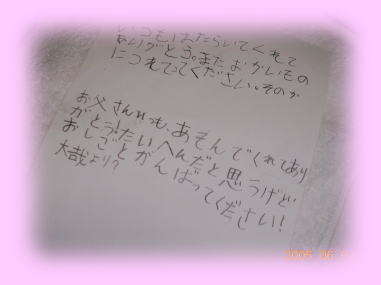 いつもはたらいてくれて
ありがとう。またおかいもの
につれてってください。そのか
お父さんいつも、あそんでくれてあり
がとう!たいへんだと思うけど
おしごとがんばってください!
大哉より?
2005 06